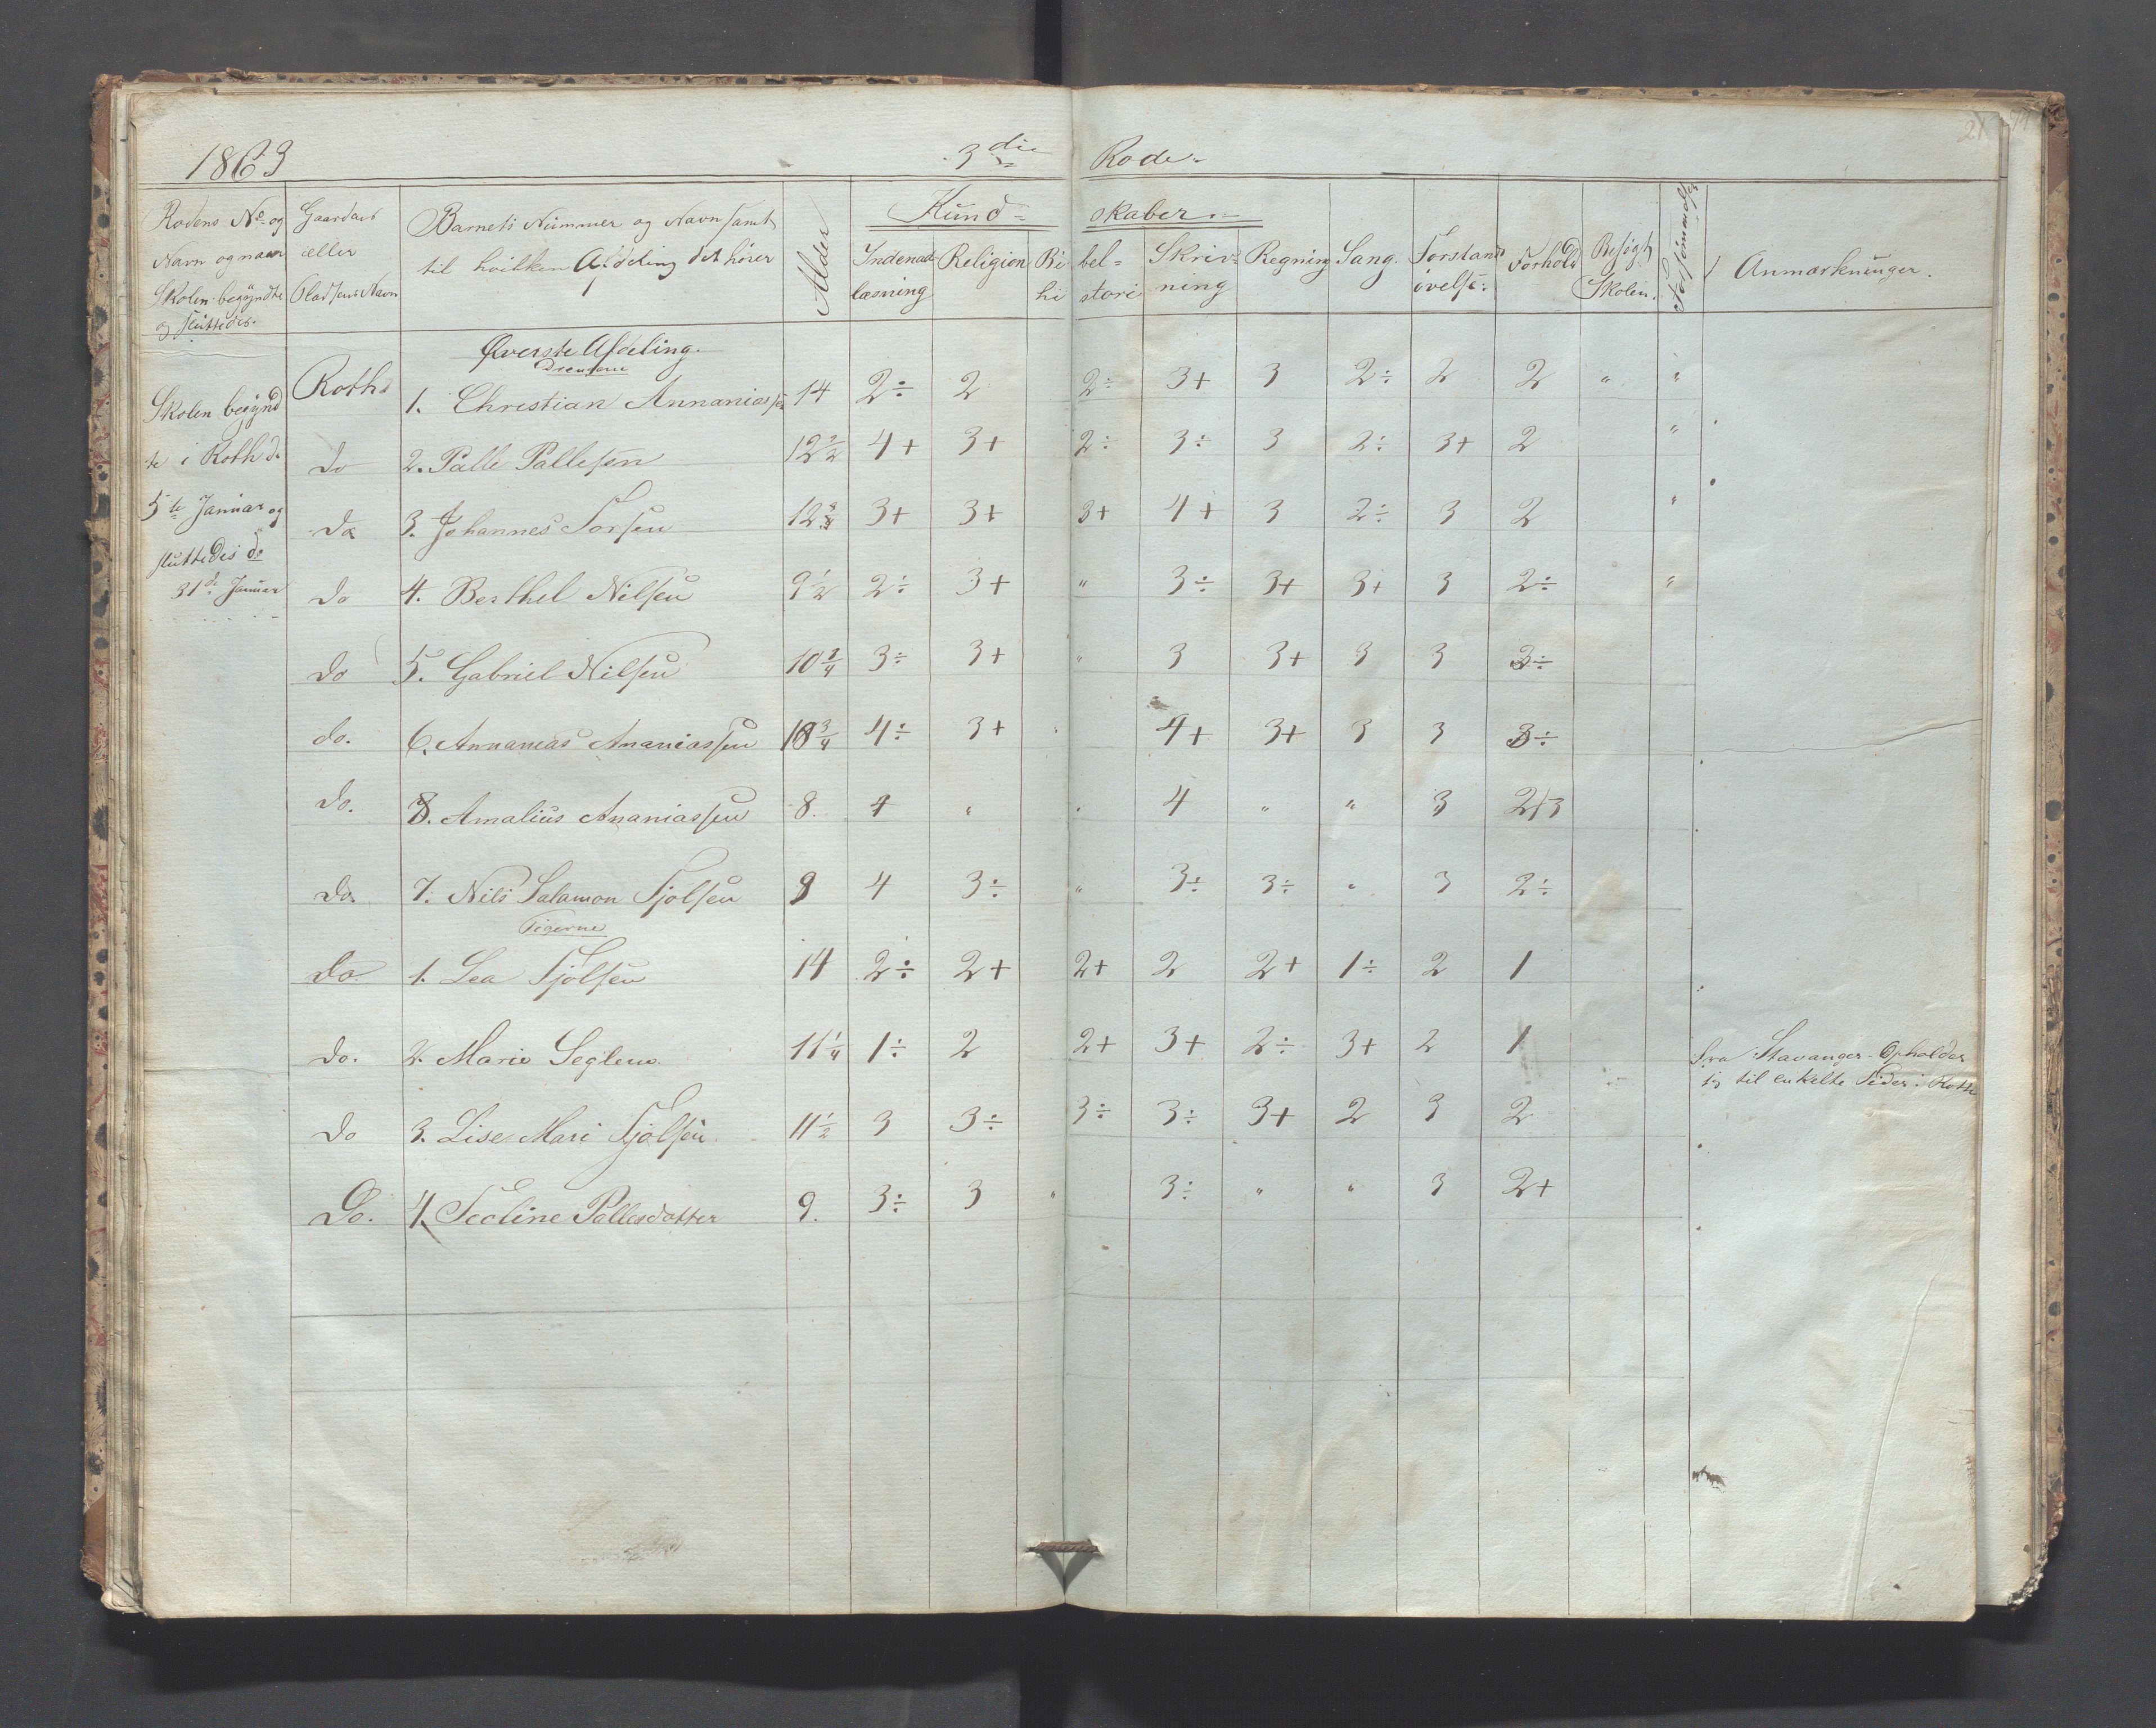 1863 3die Rode.
Rodens No og Navn og naar Skolen begÿndte og sluttedes. | Gaardens eller Pladsens Navn | Barnets Nummer og Navn samt til hvilken Afdeling det hører | Alder | Kundskaber. | Indenadlæsning | Religion | Bibelhistorie | Skrivning | Regning | Sang. | Forstandsøvelse. | Forhold | Besøgt Skolen. | Forsømmelse | Anmærkninger.
Øverste Afdeling.
Drengene
Skolen begyndte i Roth d. 5te Januar og sluttedes d. 31de Januar
Roth | 1. Christian Annaniassen | 14 | 2÷ | 2 | 2÷ | 3+ | 3 | 2÷ | 2 | 2 | " | "
do | 2. Palle Pallesen | 12 | 4+ | 3+ | 2÷ | 3÷ | 3 | 2÷ | 3+ | 2 | "
do | 3. Johannes Torsen | 12 3/4 | 3+ | 3+ | 3+ | 4+ | 3 | 2÷ | 3 | 2 | "
do | 4. Berthel Nilsen | 9 1/2 | 2÷ | 3+ | " | 3÷ | 3+ | 3+ | 3 | 2÷ | "
do | 5. Gabriel Nilsen | 10 3/4 | 3÷ | 3+ | " | 3 | 3+ | 3 | 3 | 3÷
do. | 6. Annanias Ananiassen | 10 3/4 | 4÷ | 3+ | 4+ | 3+ | 3 | 3 | 3÷
do. | 8. Amalius Ananiassen | 8. | 4 | " | " | 4 | " | " | 3 | 2/3
do. | 7. Nils Salamon Tjølsen | 9 | 4 | 3÷ | " | 3÷ | 3÷ | " | 3 | 2÷
Pigerne
do. | 1. Lea Tjølsen | 14 | 2÷ | 2+ | 2+ | 2 | 2+ | 1÷ | 2 | 1
do. | 2. Marie Seglem | 11 1/4 | 1÷ | 2 | 2+ | 3+ | 2÷ | 3+ | 2 | 1 | Fra Stavanger. Opholder sig til enkelte Tider i Roth
do | 3. Lise Mari Tjølsen. | 11 1/2 | 3 | 3÷ | 3÷ | 3÷ | 3+ | 2 | 3 | 2
Do. | 4. Tecline Pallesdatter | 9. | 3÷ | 3 | " | 3÷ | " | " | 3 | 2+